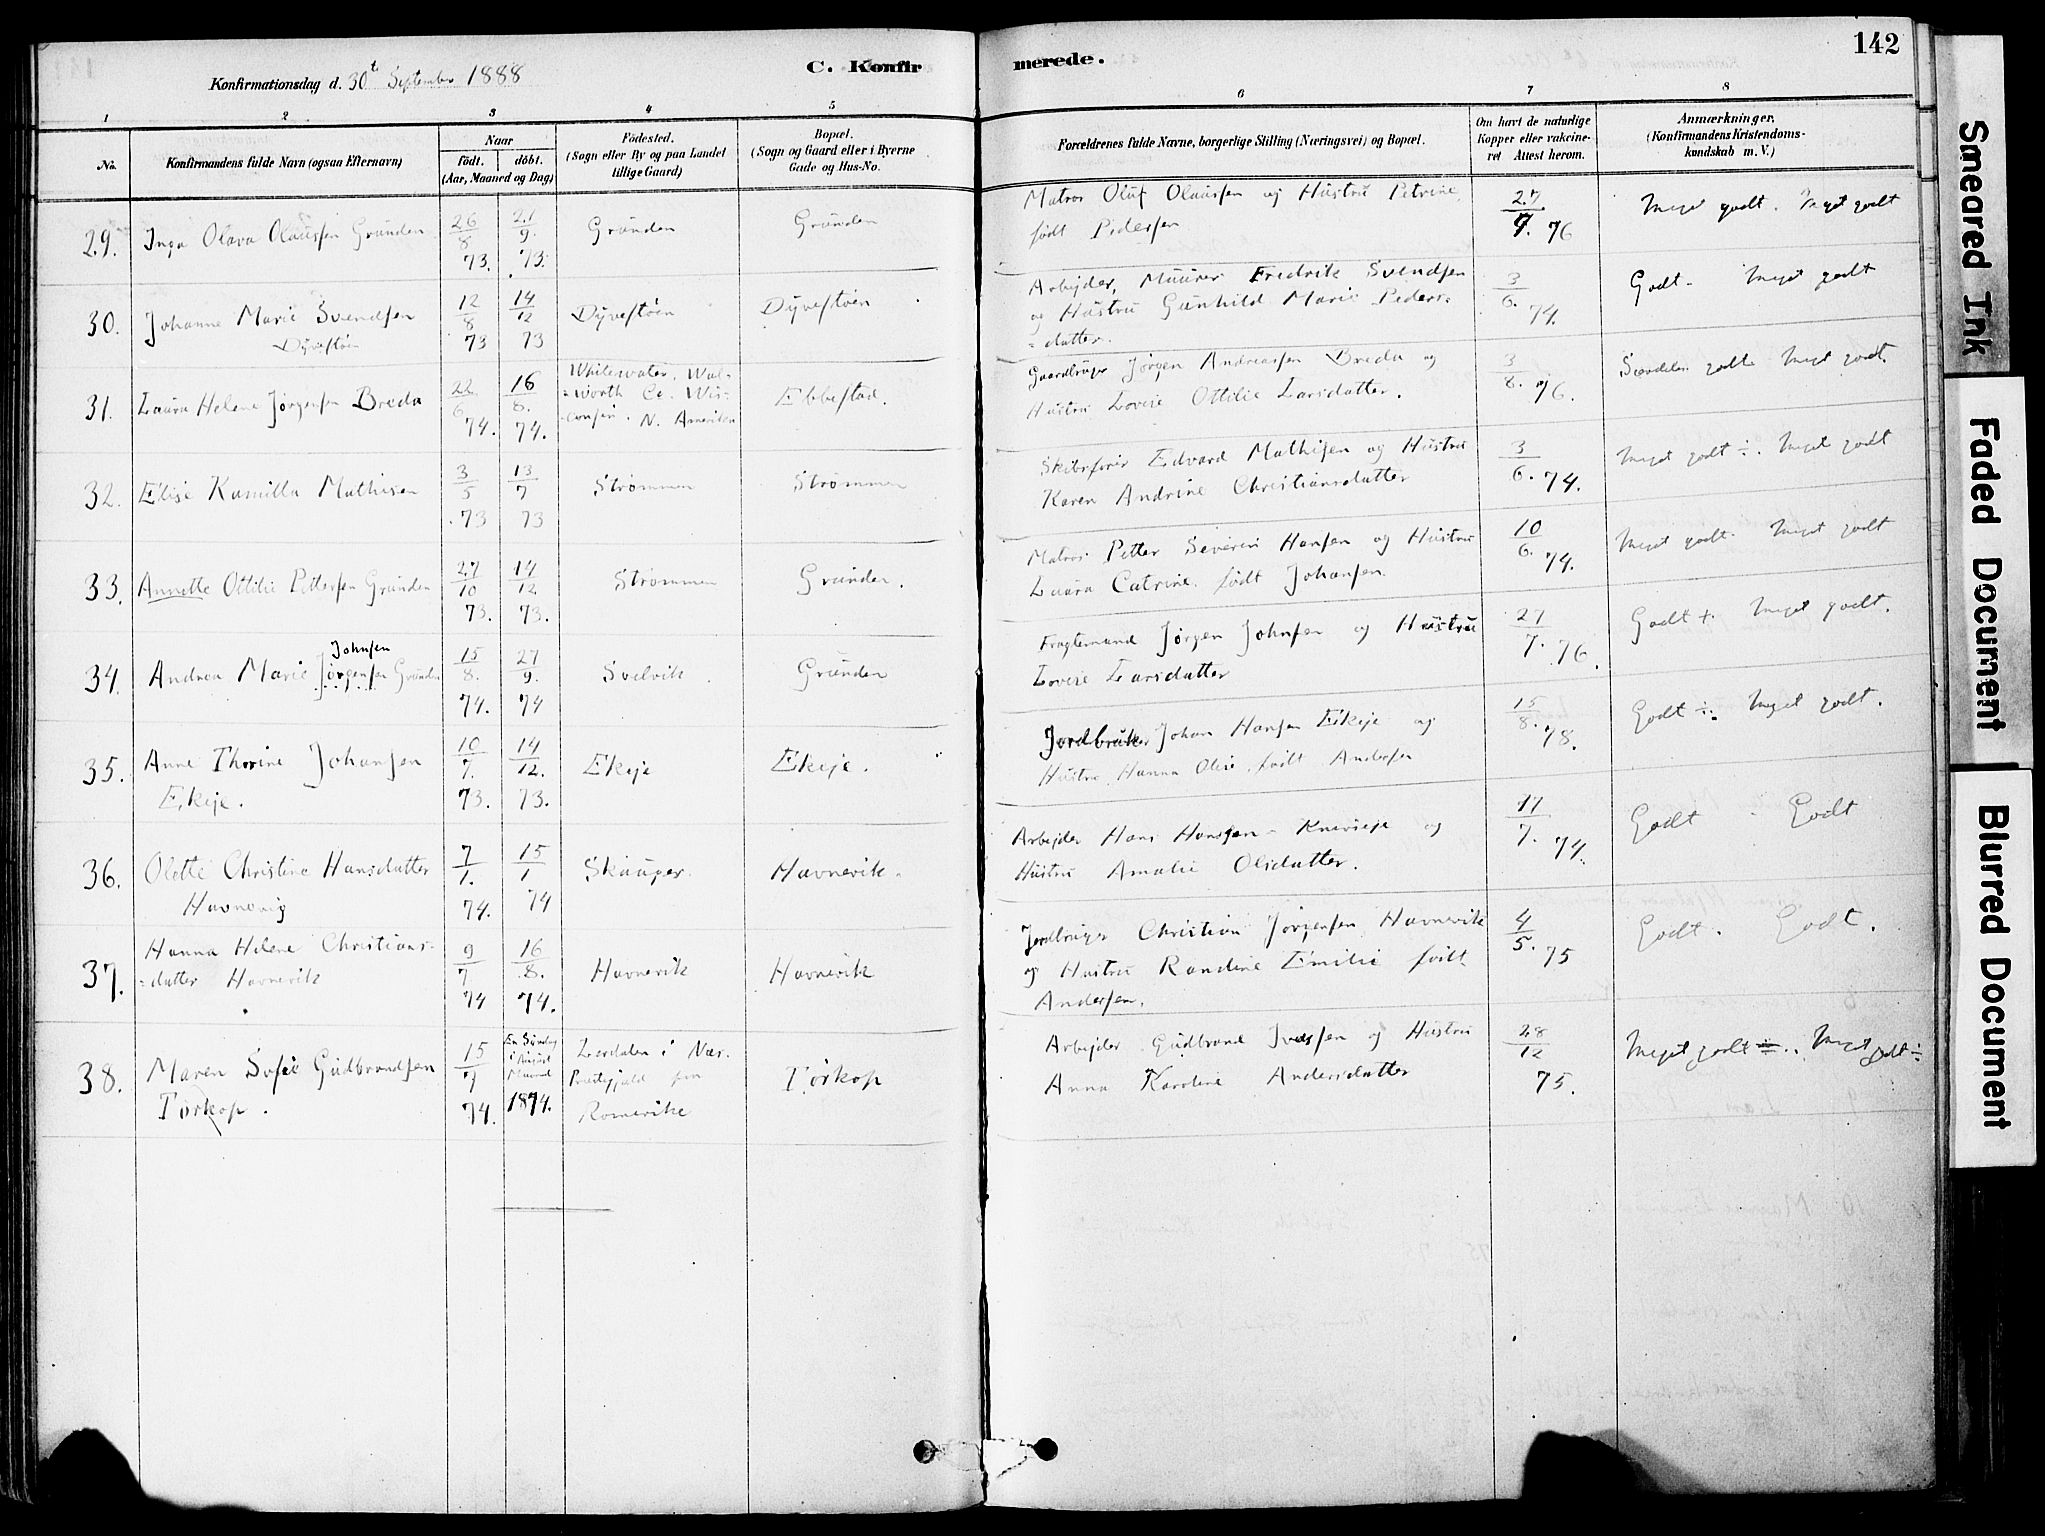 142
C. Konfirmerede.
Konfirmationsdag d. 30t September 1888
1 2 3 4 5 6 7 8
No.
Konfirmandens fulde Navn (ogsaa Efternavn)
Naar
født. døbt.
(Aar, Maaned og Dag)
Fødested.
(Sogn eller By og paa Landet
tillige Gaard)
Bopæl.
(Sogn og Gaard eller i Byerne
Gade og Hus-No.
Forældrenes fulde Navne, borgerlige Stilling (Næringsvei) og Bopæl.
Om havt de naturlige
Kopper eller vakcine-
ret Attest herom.
Anmærkninger.
(Konfirmandens Kristendoms-
kundskab m. V.)
29. Inga Olava Olaussen Grunden 26/8 73. 21/9. 73. Grunden Grunden
Matros Oluf Olaussen og Hustru Petrine,
født Pedersen
27/7. 76 Meget godt. Meget godt
30. Johanne Marie Svendsen
Dyvestøen
12/8 73 14/12 73 Dyvestøen Dyvestøen
Arbejder, Muurer Fredrik Svendsen
og Hustru Gunhild Marie Peders-
=datter.
3/6. 74. Godt - Meget godt
31. Laura Helene Jørgensen Breda 22/6 74. 16/8. 74.
Whitewater, Wal-
=worth Co. Wis-
=consin. N. Amerika
Ebbestad.
Gaardbruger Jørgen Andreassen Breda og
Hustru Lovise Ottilie Larsdatter.
3/8. 76. Særdeles godt Meget godt.
32. Elise Kamilla Mathisen 3/5 73 13/7 73 Strømmen Strømmen
Skibsfører Edvard Mathisen og Hustru
Karen Andrine Christiansdatter
3/6. 74. Meget godt ÷. Meget godt
33. Annette Ottilie Pettersen Grunden 27/10 73. 14/12 73. Strømmen Grunden.
Matros Petter Severin Hansen og Hustru
Laura Catrine født Johansen.
10/6. 74. Meget godt. Meget godt
34. Andrea Marie Jørgensen Grunden
Johnsen
15/8. 74. 27/9. 74 Svelvik Grunden
Fragtemand Jørgen Johnsen og Hustru
Lovise Larsdatter
27/7. 76. Godt +. Meget godt.
35. Anne Thorine Johansen
Ekeje.
10/7. 73. 14/12. 73. Ekeje Ekeje.
Jordbruker Johan Hansen Ekeje og
Hustru Hanna Olise født Andersen
15/8. 78. Godt ÷. Meget godt.
36. Olette Christine Hansdatter
Havnevig
7/1. 74. 15/1 74 Skauger. Havnevik.
Arbejder Hans Hanssen og
Hustru Amalie Olsdatter.
17/7. 74. Godt - Godt
37. Hanna Helene Christians-
=datter Havnevik
9/7 74 16/8. 74. Havnevik Havnevik
Jordbruger Christian Jørgensen Havnevik
og Hustru Randine Emilie født
Andersen.
4/5. 75 Godt. Godt.
38. Maren Sofie Gudbrandsen
Tørkop.
15/7 74.
En Søndag
i August
Maaned
1874.
i Næs
Prestegjeld paa
Romerike
Tørkop
Arbejder Gudbrand Iversen og Hustru
Anna Karoline Andersdatter
28/12 75. Meget godt ÷. Meget godt ÷
Smeared Ink
Faded Document
Blurred Document